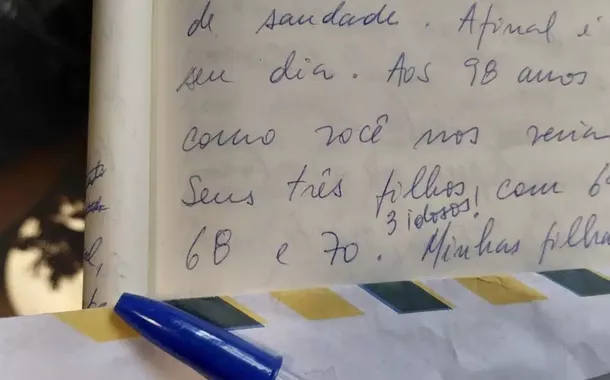 de saudade. Afinal é
seu dia. Aos 98 anos
como você nos veria
Seus três filhos, com 6
3 idosos!
68 e 70. Minhas filha